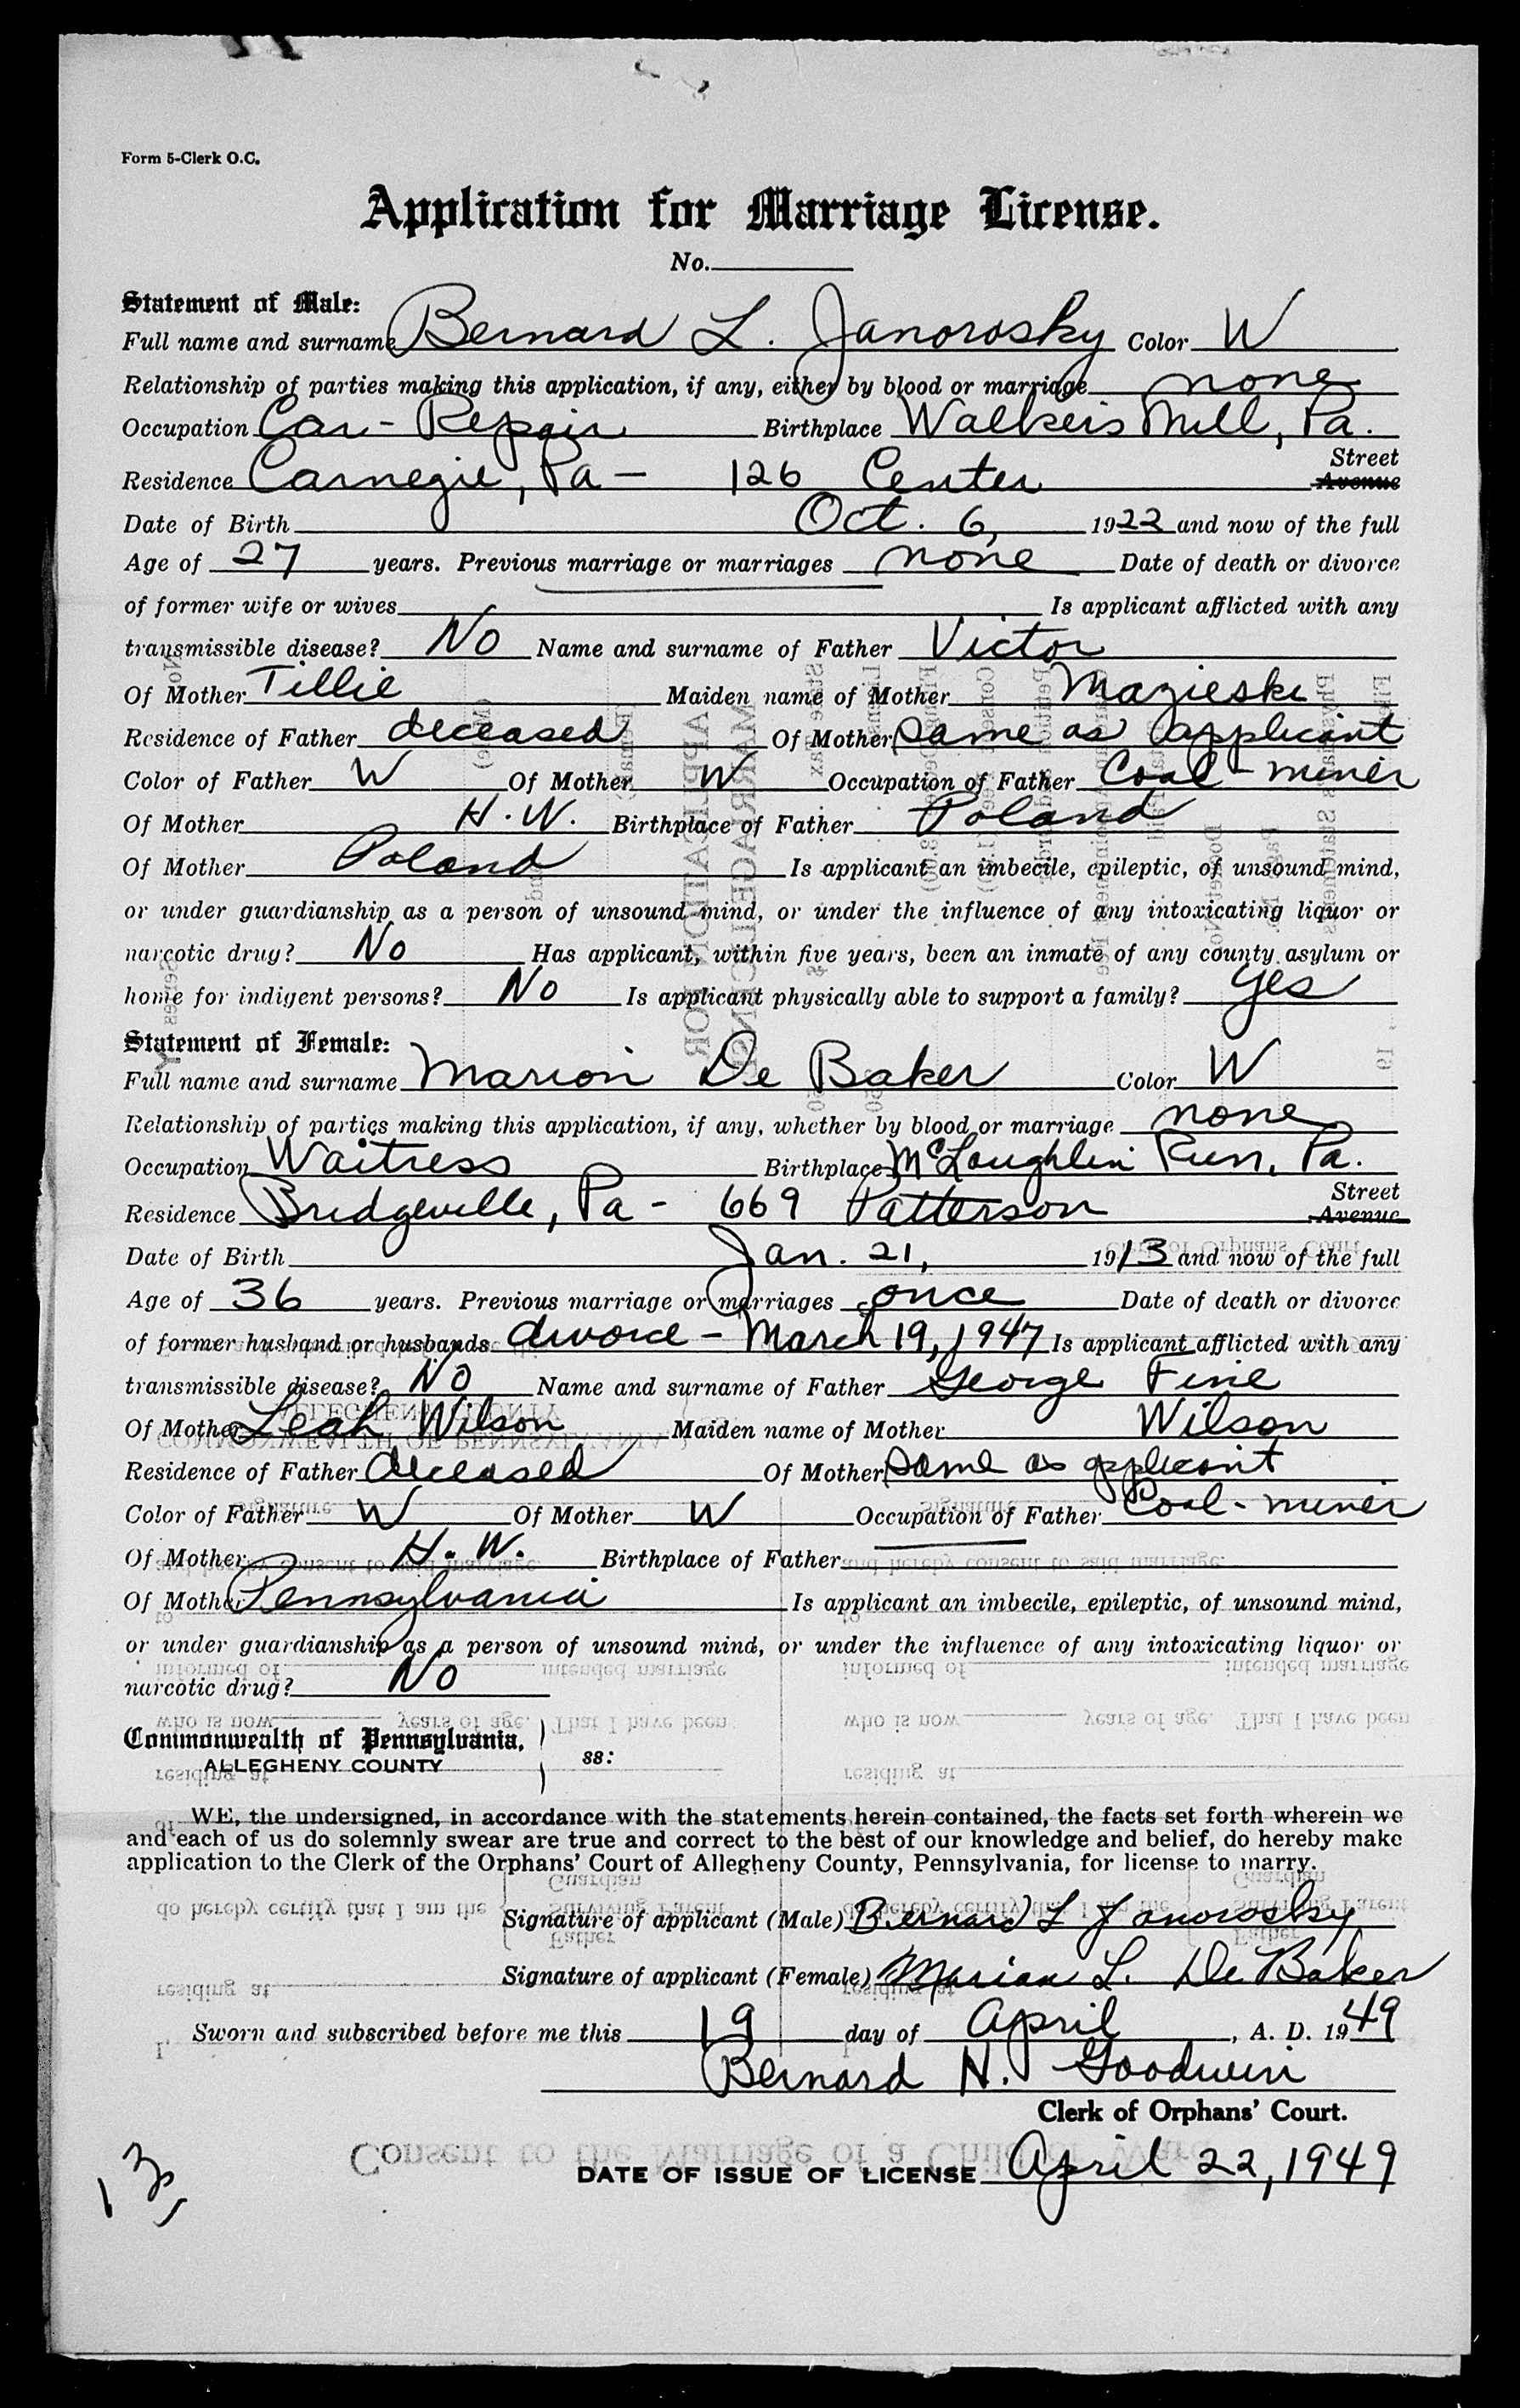 Form 5-Clerk O.C.
Application for Marriage License.
No.
Statement of Male:
Full name and surname Bernard L. Janorosky Color W
Relationship of parties making this application, if any, either by blood or marriage none
Occupation Car-Repair Birthplace Walkers Mill, Pa.
Residence Carnegie, Pa - 126 Center Street Avenue
Date of Birth Oct. 6, 1922 and now of the full
Age of 27 years. Previous marriage or marriages none Date of death or divorce
of former wife or wives Is applicant afflicted with any
transmissible disease? No Name and surname of Father Victor
Of Mother Tillie Maiden name of Mother Mazieski
Residence of Father deceased Of Mother same as applicant
Color of Father W Of Mother W Occupation of Father Coal-miner
Of Mother H.W. Birthplace of Father Poland
Of Mother Poland Is applicant an imbecile, epileptic, of unsound mind,
or under guardianship as a person of unsound mind, or under the influence of any intoxicating liquor or
narcotic drug? No Has applicant, within five years, been an inmate of any county asylum or
home for indigent persons? No Is applicant physically able to support a family? yes
Statement of Female:
Full name and surname Marion De Baker Color W
Relationship of parties making this application, if any, whether by blood or marriage none
Occupation Waitress Birthplace McLaughlin Run, Pa.
Residence Bridgeville, Pa - 669 Patterson Street Avenue
Date of Birth Jan. 21, 1913 and now of the full
Age of 36 years. Previous marriage or marriages once Date of death or divorce
of former husband or husbands divorce - March 19, 1947 Is applicant afflicted with any
transmissible disease? No Name and surname of Father George Fine
Of Mother Leah Wilson Maiden name of Mother Wilson
Residence of Father deceased Of Mother same as applicant
Color of Father W Of Mother W Occupation of Father Coal-miner
Of Mother H.W. Birthplace of Father
Of Mother Pennsylvania Is applicant an imbecile, epileptic, of unsound mind,
or under guardianship as a person of unsound mind, or under the influence of any intoxicating liquor or
narcotic drug? No
Commonwealth of Pennsylvania,
ALLEGHENY COUNTY ss:
WE, the undersigned, in accordance with the statements herein contained, the facts set forth wherein we
and each of us do solemnly swear are true and correct to the best of our knowledge and belief, do hereby make
application to the Clerk of the Orphans' Court of Allegheny County, Pennsylvania, for license to marry.
Signature of applicant (Male) Bernard L Janorosky
Signature of applicant (Female) Marian L. De Baker
Sworn and subscribed before me this 19 day of April, A. D. 1949
Bernard H. Goodwin
Clerk of Orphans' Court.
DATE OF ISSUE OF LICENSE April 22, 1949